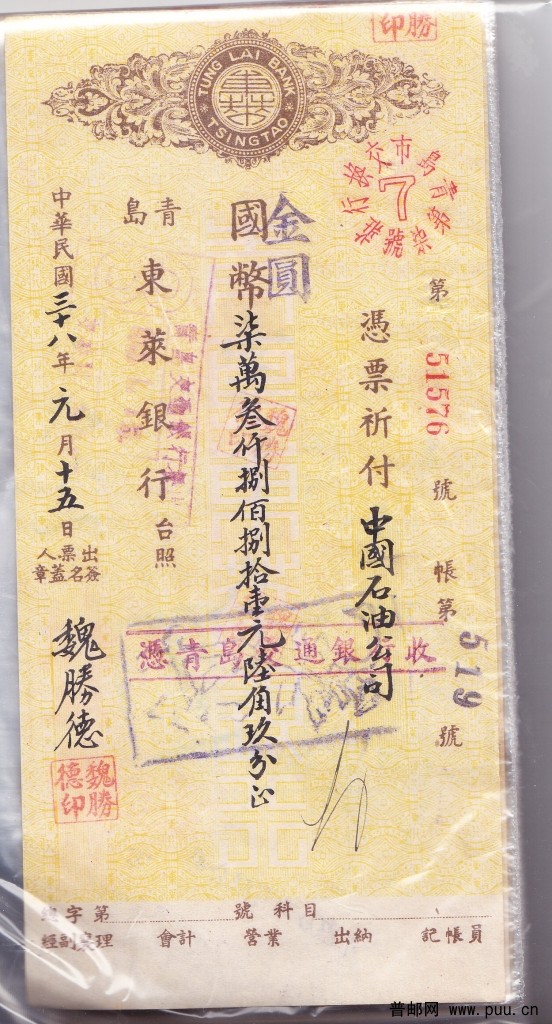 勝印
TUNG LAI BANK
TSINGTAO
青島市交換行莊
7
號
第 51576 號
帳第 519 號
憑票祈付 中國石油公司
金圓
國幣 柒萬叁仟捌佰捌拾壹元陸角玖分正
青島 東萊銀行 台照
憑青島交通銀行收
中華民國三十八年元月十五日
出票人
簽名蓋章
魏勝德
魏勝德印
字第 號 科目
經副襄理 會計 營業 出納 記帳員
普邮网 www.puu.cn